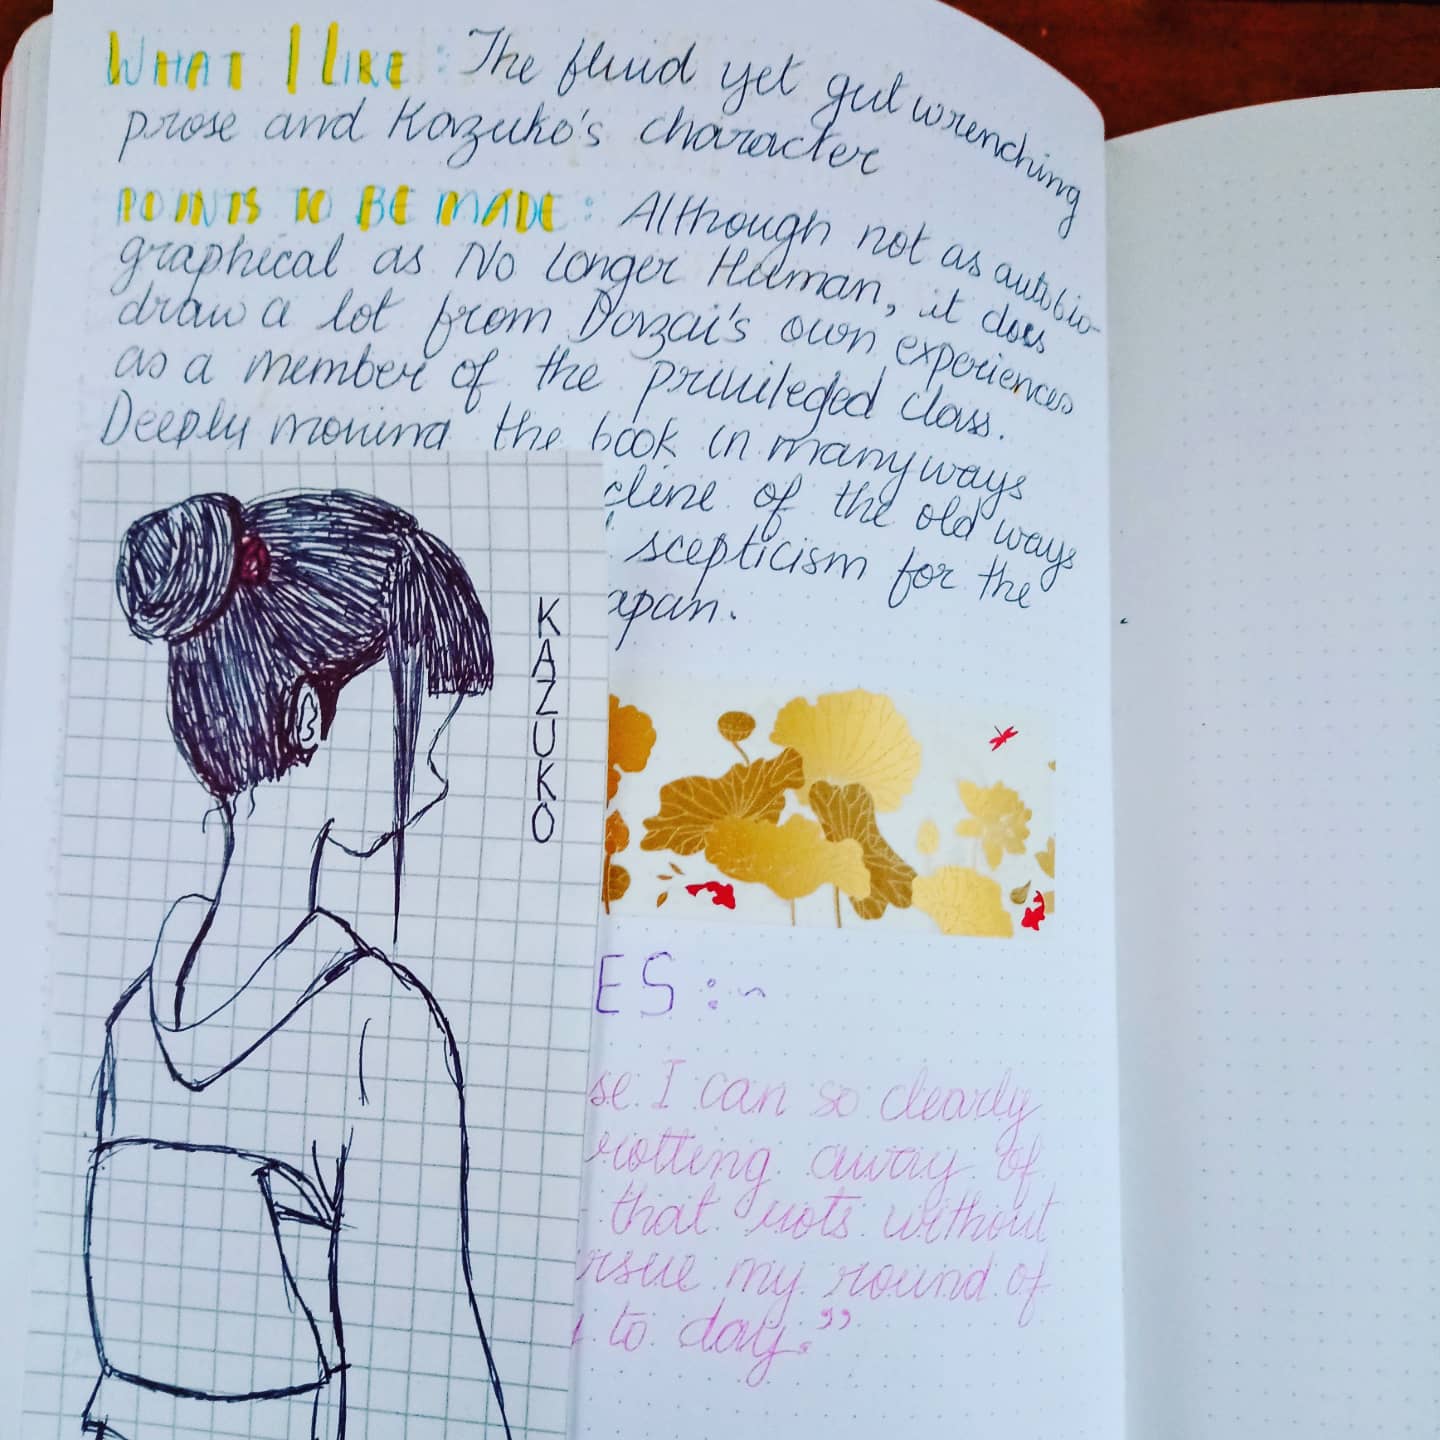 WHAT I LIKE: The fluid yet gut wrenching
prose and Kazuko's character
POINTS TO BE MADE: Although not as autobio-
graphical as No Longer Human, it does
draw a lot from Dazai's own experiences
as a member of the privileged class.
Deeply moving the book in many ways
cline of the old ways
scepticism for the
apan.
KAZUKO
ES:~
se I can so clearly
rotting away of
that rots without
rsue my round of
to day."